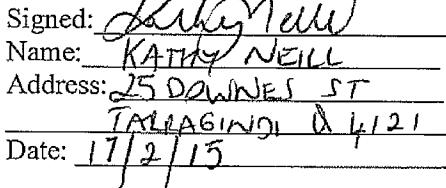 Signed: Kathy Neill
Name: KATHY NEILL
Address: 25 DOWNES ST
TARRAGINDI Q 4121
Date: 17/2/15